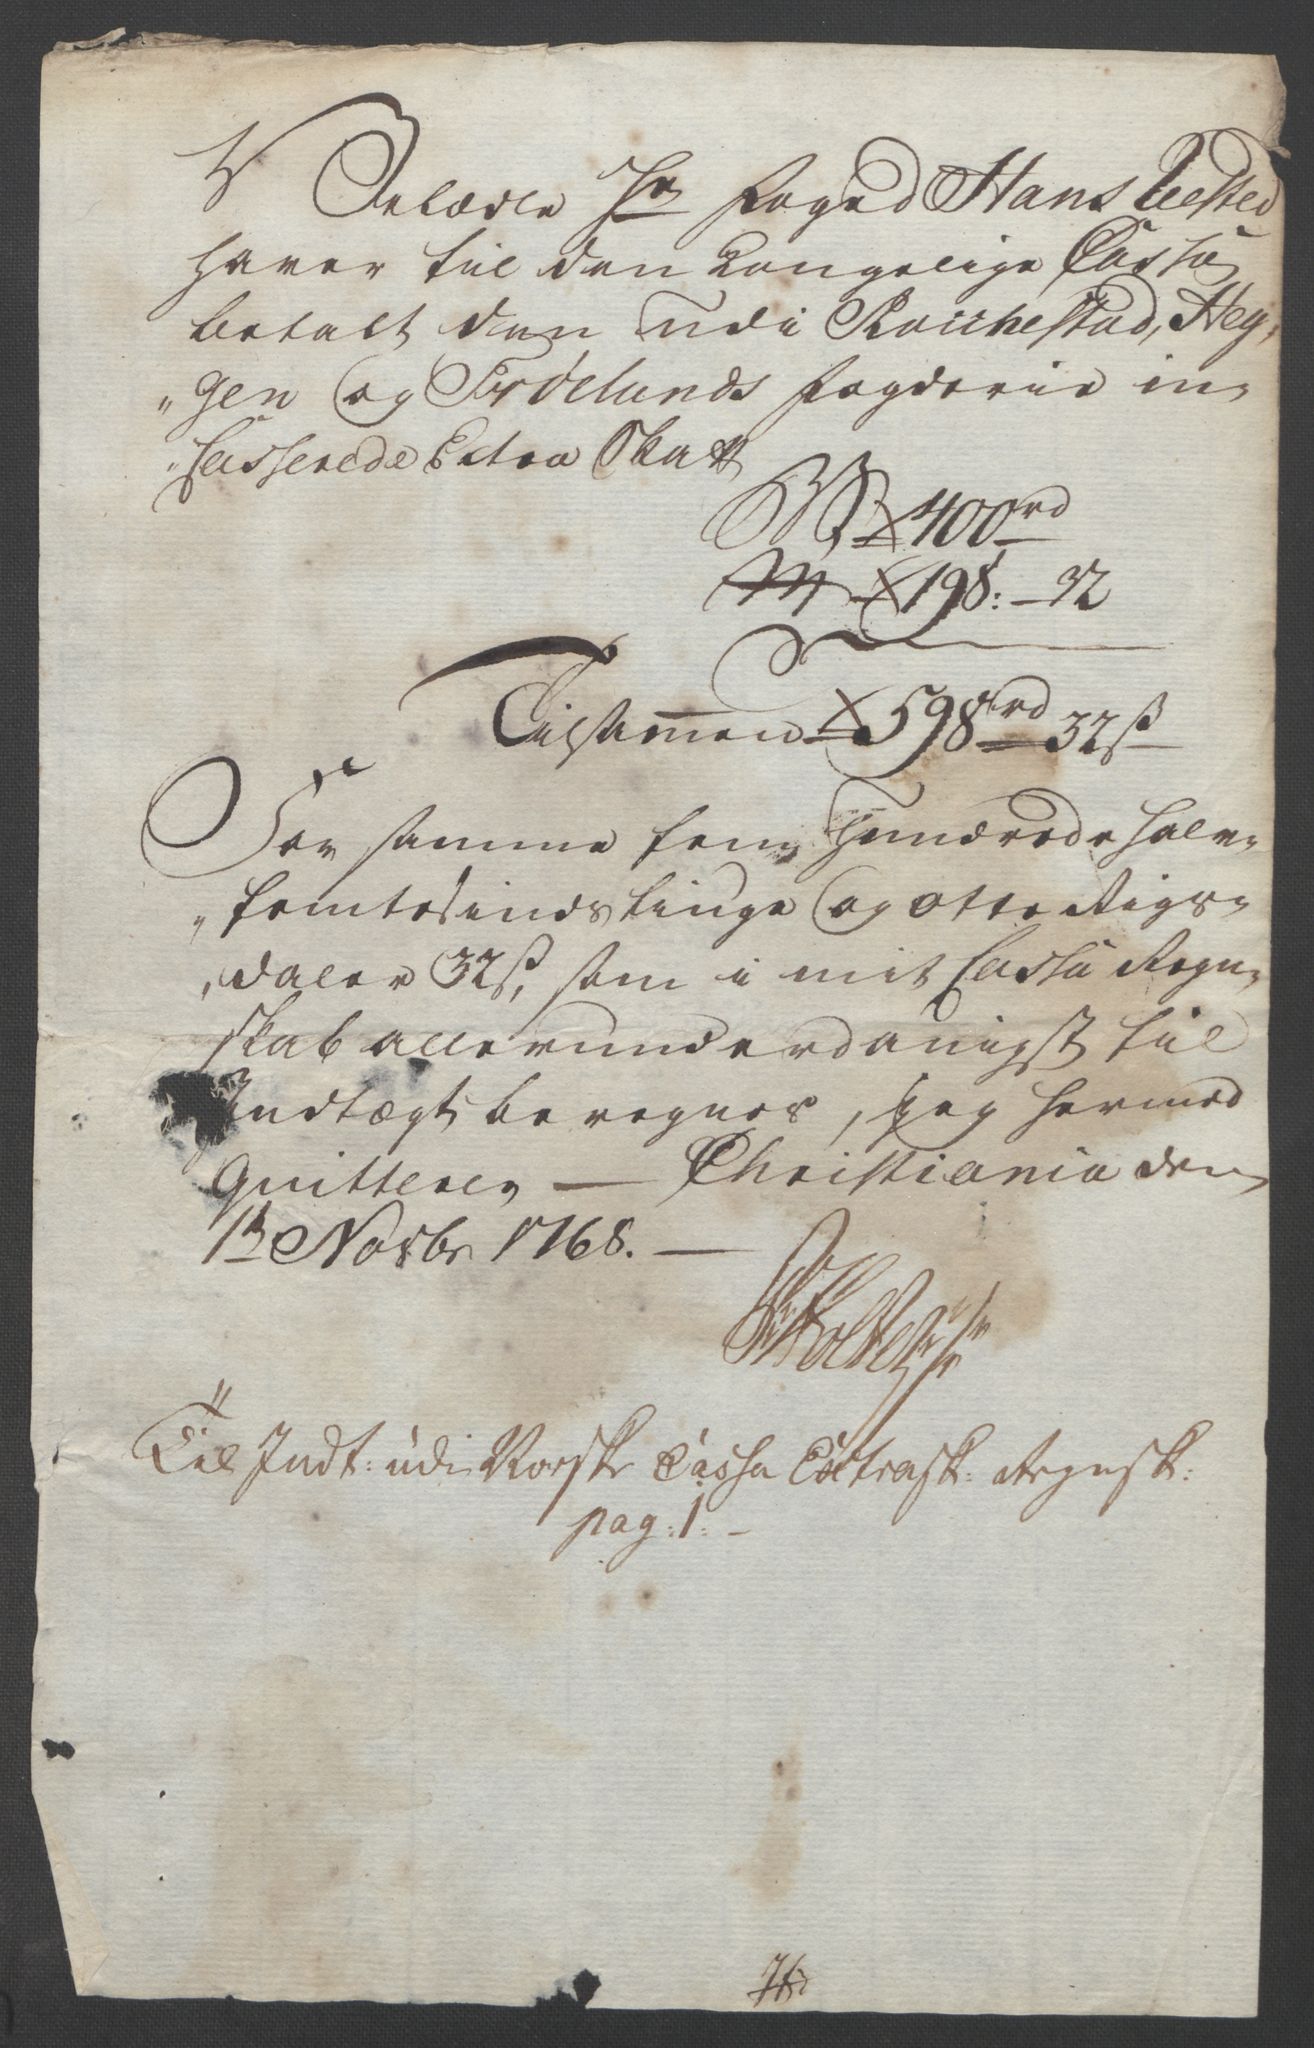 Velædle Hr Foged Hans Tiested
haver til den Kongelige Cassa
betalt den udi Rackestad, Heg„
„gen og Frølands Fogderie in„
„casserede Extra Skatt
400rd
198: – 32
Tilsammen 598rd 32ß
For samme fem Hundrede halv„
„femtesindstiuge og otte Rigs„
„daler 32ß, som i mit Cassa Regn„
skab allerunderdanigst til
Indtægt beregnes, jeg hermed
quitterer — Christiania den
1te Novbr 1768. —
Til Indt: udi Norske Cassa Extrask: Regnsk:
pag: 1: –